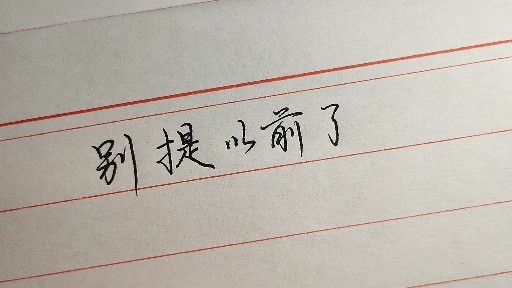 别提以前了